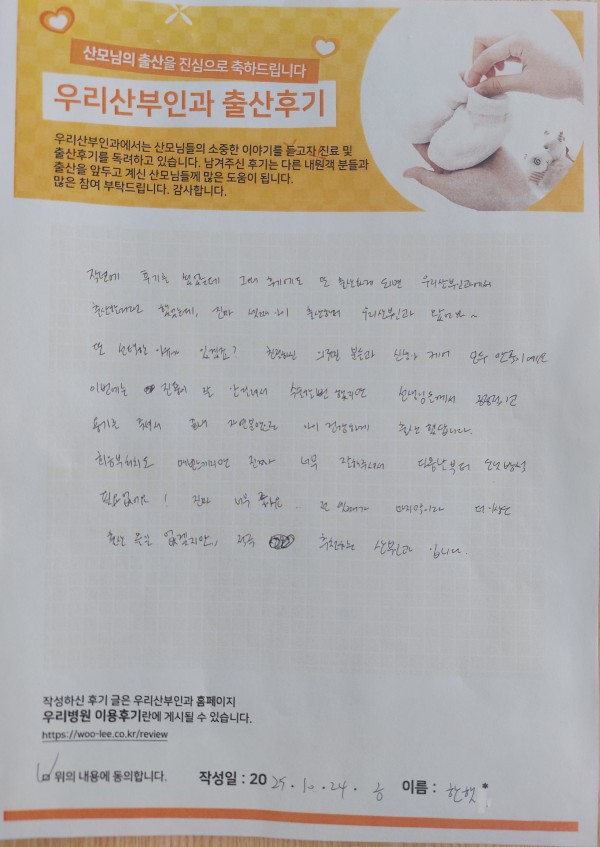 산모님의 출산을 진심으로 축하드립니다
우리산부인과 출산후기
우리산부인과에서는 산모님들의 소중한 이야기를 듣고자 진료 및
출산후기를 독려하고 있습니다. 남겨주신 후기는 다른 내원객 분들과
출산을 앞두고 계신 산모님들께 많은 도움이 됩니다.
많은 참여 부탁드립니다. 감사합니다.
작년에 후기를 썼었는데 그때 후기에도 또 출산하게 되면 우리산부인과에서
출산한다고 했었는데, 진짜 셋째 아이 출산하러 우리산부인과 왔어요~
또 선택한 이유가 있겠죠? 친절하신 의료진 분들과 신생아 케어 모두 만족이에요
이번에는 진통이 잘 안걸려서 수술할뻔 했지만 선생님들께서
용기를 주셔서 자연분만으로 아이 건강하게 출산 했답니다.
회음부처치도 예쁘게 진짜 너무 잘해주셔서 다음날부터 도넛방석
필요없어요! 진짜 너무 좋아요.. 전 셋째가 마지막이라 더 이상은
출산 운은 없겠지만, 적극 추천하는 산부인과 입니다.
작성하신 후기 글은 우리산부인과 홈페이지
우리병원 이용후기란에 게시될 수 있습니다.
https://woo-lee.co.kr/review
위의 내용에 동의합니다. 작성일 : 2025.10.24. 이름 : 한*